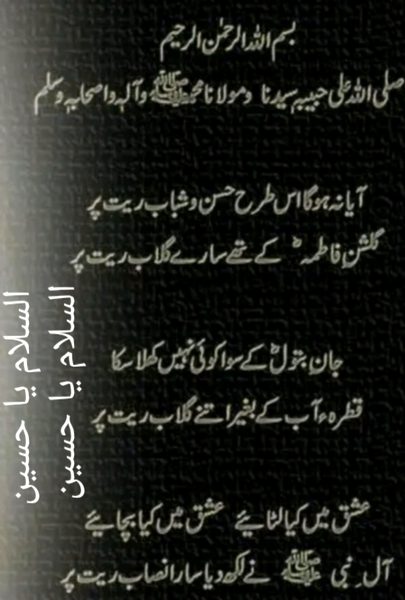 بسم اللہ الرحمٰن الرحیم
صلی اللہ علی حبیبہٖ سیدنا ومولانا محمد ﷺ وآلہٖ واصحابہٖ وسلم
آیا نہ ہوگا اس طرح حسن و شباب ریت پر
گلشنِ فاطمہؓ کے تھے سارے گلاب ریت پر
جانِ بتولؓ کے سوا کوئی نہیں کھلا سکا
قطرہءِ آب کے بغیر اتنے گلاب ریت پر
عشق میں کیا لٹائیے عشق میں کیا بچائیے
آلِ نبی ﷺ نے لکھ دیا سارا نصاب ریت پر
السلام یا حسین
السلام یا حسین